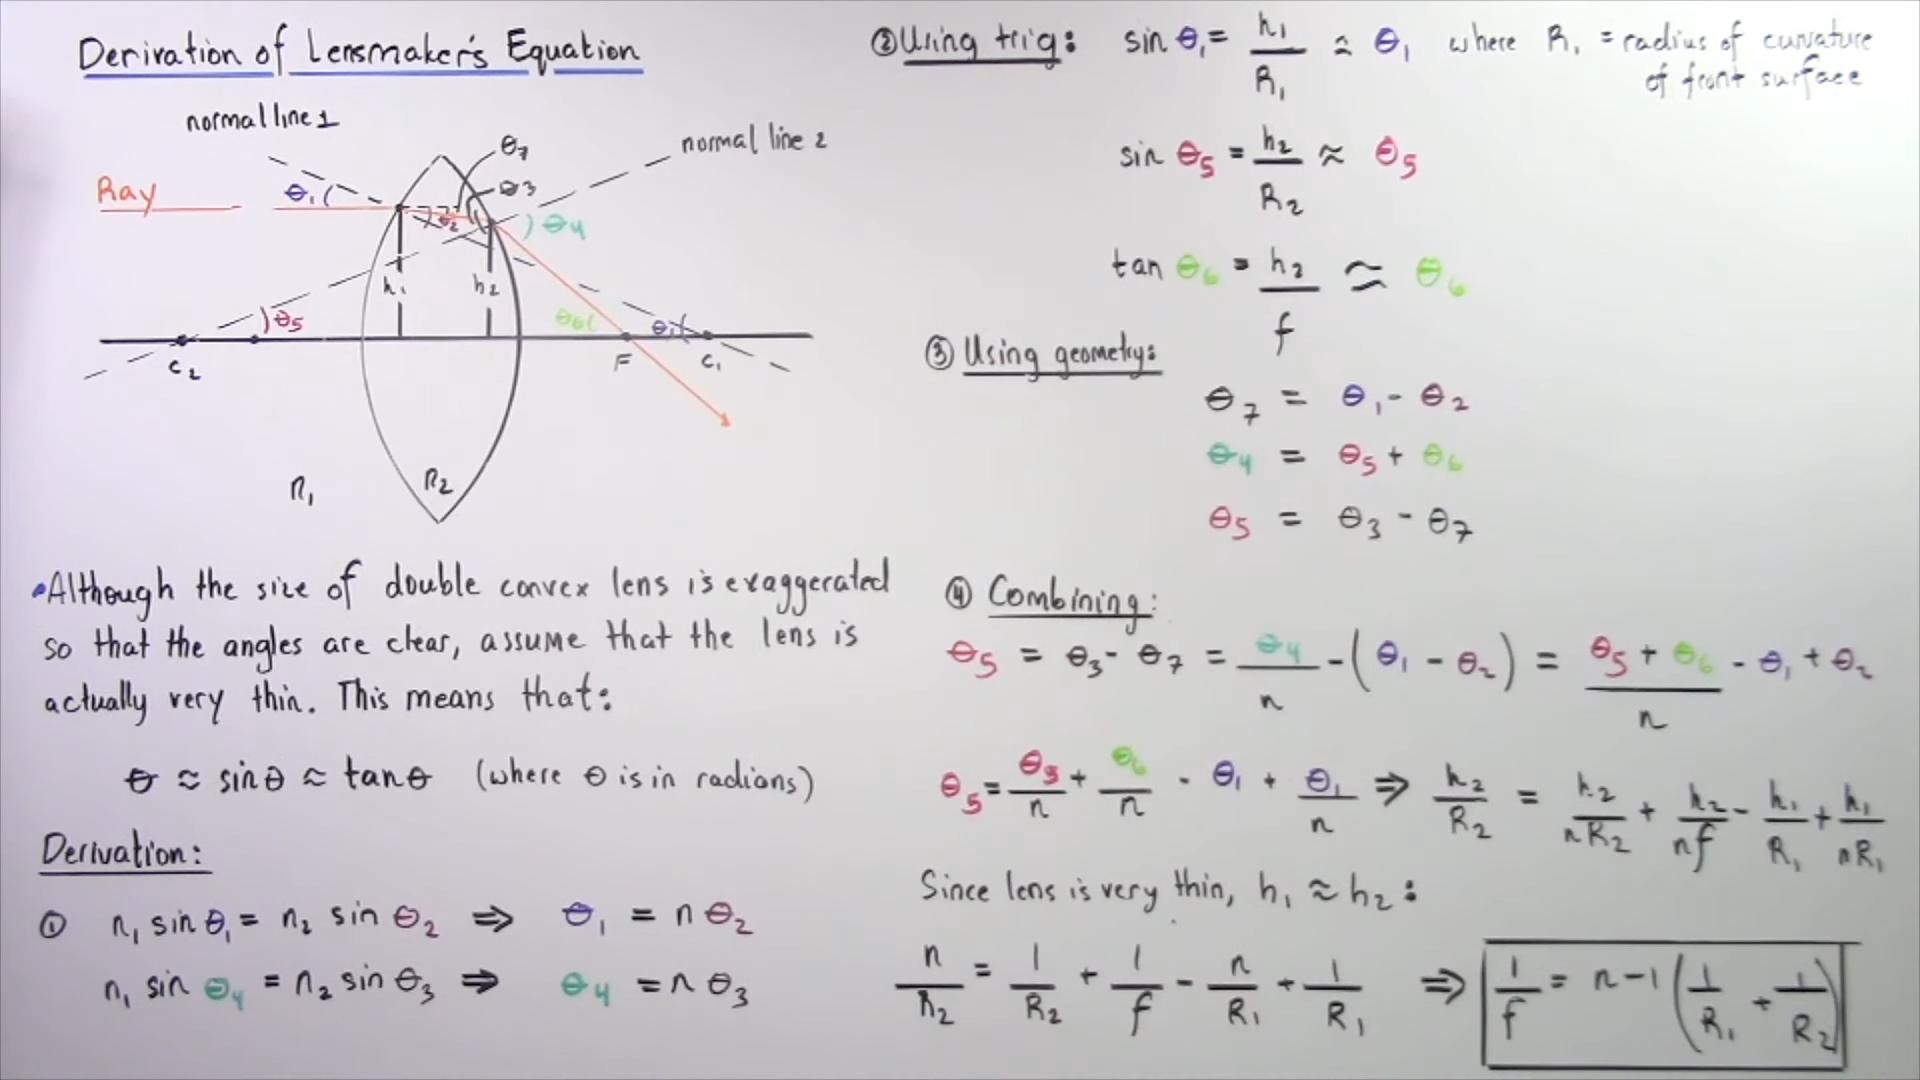 Derivation of Lensmaker's Equation
normal line 1
normal line 2
θ7
θ3
Ray
θ1
θ2
θ4
h1
h2
θ5
θ6
θ1
C2
F
C1
n1
n2
•Although the size of double convex lens is exaggerated
so that the angles are clear, assume that the lens is
actually very thin. This means that:
θ ≈ sinθ ≈ tanθ (where θ is in radians)
Derivation:
① n1 sin θ1 = n2 sin θ2 ⇒ θ1 = n θ2
n1 sin θ4 = n2 sin θ3 ⇒ θ4 = n θ3
② Using trig: sin θ1 = h1/R1 ≈ θ1 where R1 = radius of curvature
of front surface
sin θ5 = h2/R2 ≈ θ5
tan θ6 = h2/f ≈ θ6
③ Using geometry:
θ7 = θ1 - θ2
θ4 = θ5 + θ6
θ5 = θ3 - θ7
④ Combining:
θ5 = θ3 - θ7 = θ4/n - (θ1 - θ2) = (θ5 + θ6)/n - θ1 + θ2
θ5 = θ5/n + θ6/n - θ1 + θ1/n ⇒ h2/R2 = h2/nR2 + h2/nf - h1/R1 + h1/nR1
Since lens is very thin, h1 ≈ h2:
n/R2 = 1/R2 + 1/f - n/R1 + 1/R1 ⇒ 1/f = n-1 (1/R1 + 1/R2)